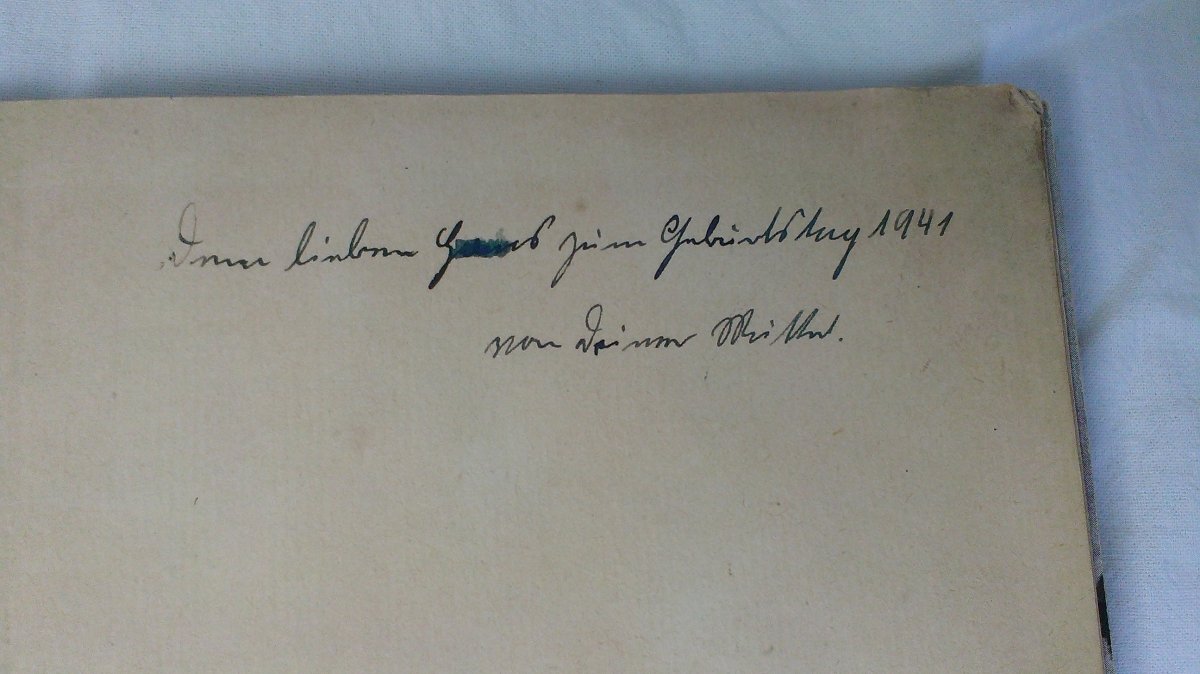 Dem lieben Hans zum Geburtstag 1941
von Deiner Mutter.